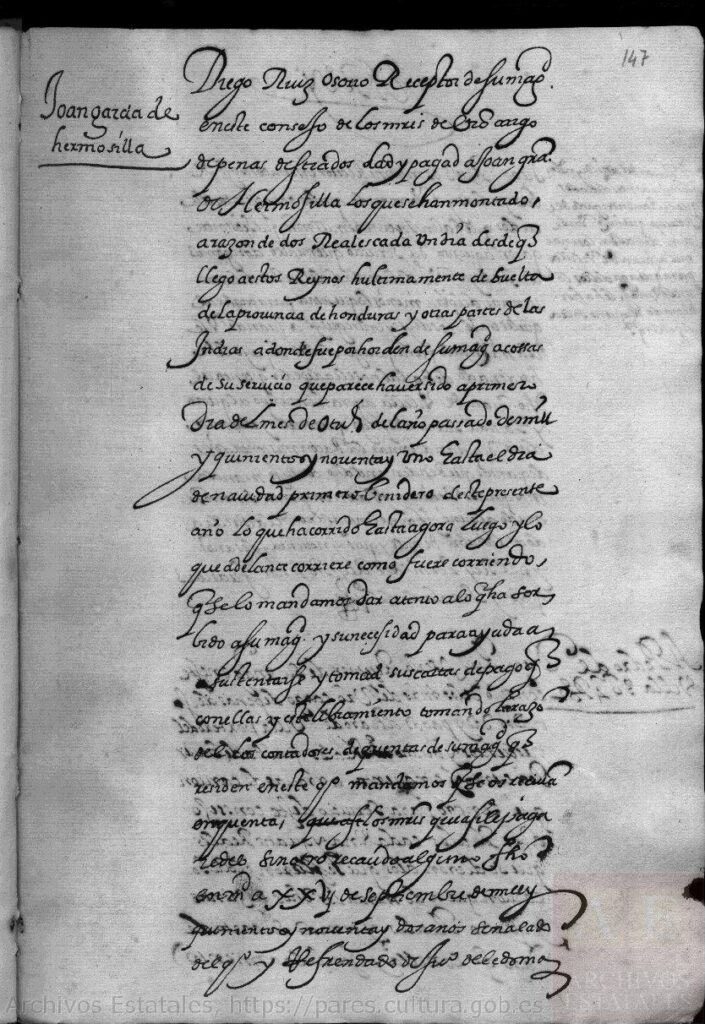 147
Joan garcia de
hermosilla
Diego Ruiz osorio Receptor de su magd.
en este consejo de los mrs de Vro cargo
de penas de estrados dad y pagad a Joan gra.
de Hermosilla los que se han montado,
a razon de dos Reales cada Un dia desde q
llego a estos Reynos hultimamente de buelta
de la provincia de honduras y otras partes de las
Indias a donde fue por horden de su magd a cossas
de su servicio que parece haver sido a primero
Dia del mes de Otue de l año passado de mill
y quinientos y noventa y Uno hasta el dia
de navidad primero benidero deste presente
año lo que ha corrido hasta agora luego y lo
que adelante corriere como fuere corriendo,
q se lo mandamos dar atento a lo q ha ser
bido a su magd. y su necesidad para ayuda a
sustentarse y tomad sus cartas de pago q
con ellas y este libramiento tomando la razo
del los contadores de quentas de su magd q
residen en este qo mandamos q se os reciba
en quenta, los mrs que assi le paga
redes sin otro recaudo alguno fho
en md a XXVj de septiembre de mill y
quinientos y noventa y dos años señalado
del qo y Refrendado de Juo de ledesma
Archivos Estatales, https://pares.cultura.gob.es